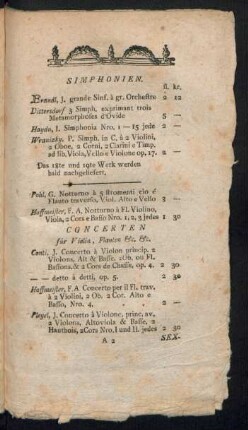 SIMPHONIEN.
fl. kr.
Brandl, J. grande Sinf. à gr. Orchestre 2 12
Dittersdorf 3 Simph. exprimant trois
Metamorphoses d'Ovide 5 —
Haydn, I. Simphonia Nro. 1 — 15 jede 2 —
Wranizky, P. Simph. in C, à 2 Violini,
2 Oboe, 2 Corni, 2 Clarini e Timp.
ad lib, Viola, Vello e Violone op. 17. 2 —
Das 18te und 19te Werk werden
bald nachgeliefert.
Pohl, G. Notturno à 5 stromenti cio é
Flauto traverso, Viol. Alto e Vello 5 —
Hoffmeister, F. A. Notturno à Fl. Violino,
Viola, 2 Cors e Basso Nro. 1, 2, 3 jedes 1 30
CONCERTEN
für Violin, Flauten &c. &c.
Conti, J. Concerto à Violon princip. 2
Violons, Alt & Basse, 2 Ob. ou Fl.
Bassons, & 2 Cors de Chasse, op. 4. 2 30
— — detto à detti, op. 5. 2 30
Hoffmeister, F. A Concerto per il Fl. trav.
à 2 Violini, 2 Ob. 2 Cor. Alto e
Basso, Nro. 4. 2 —
Pleyel, J. Concerto à Violone, princ. av.
2 Violons, Altoviola & Basse, 2
Hautbois, 2 Cors, Nro. I und II. jedes 2 30
A 2 SEX-